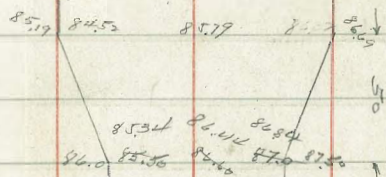 85.19 84.52 85.79
50
85.34 86.44 86.84
86.0 85.50 86.60 87.0 87.50